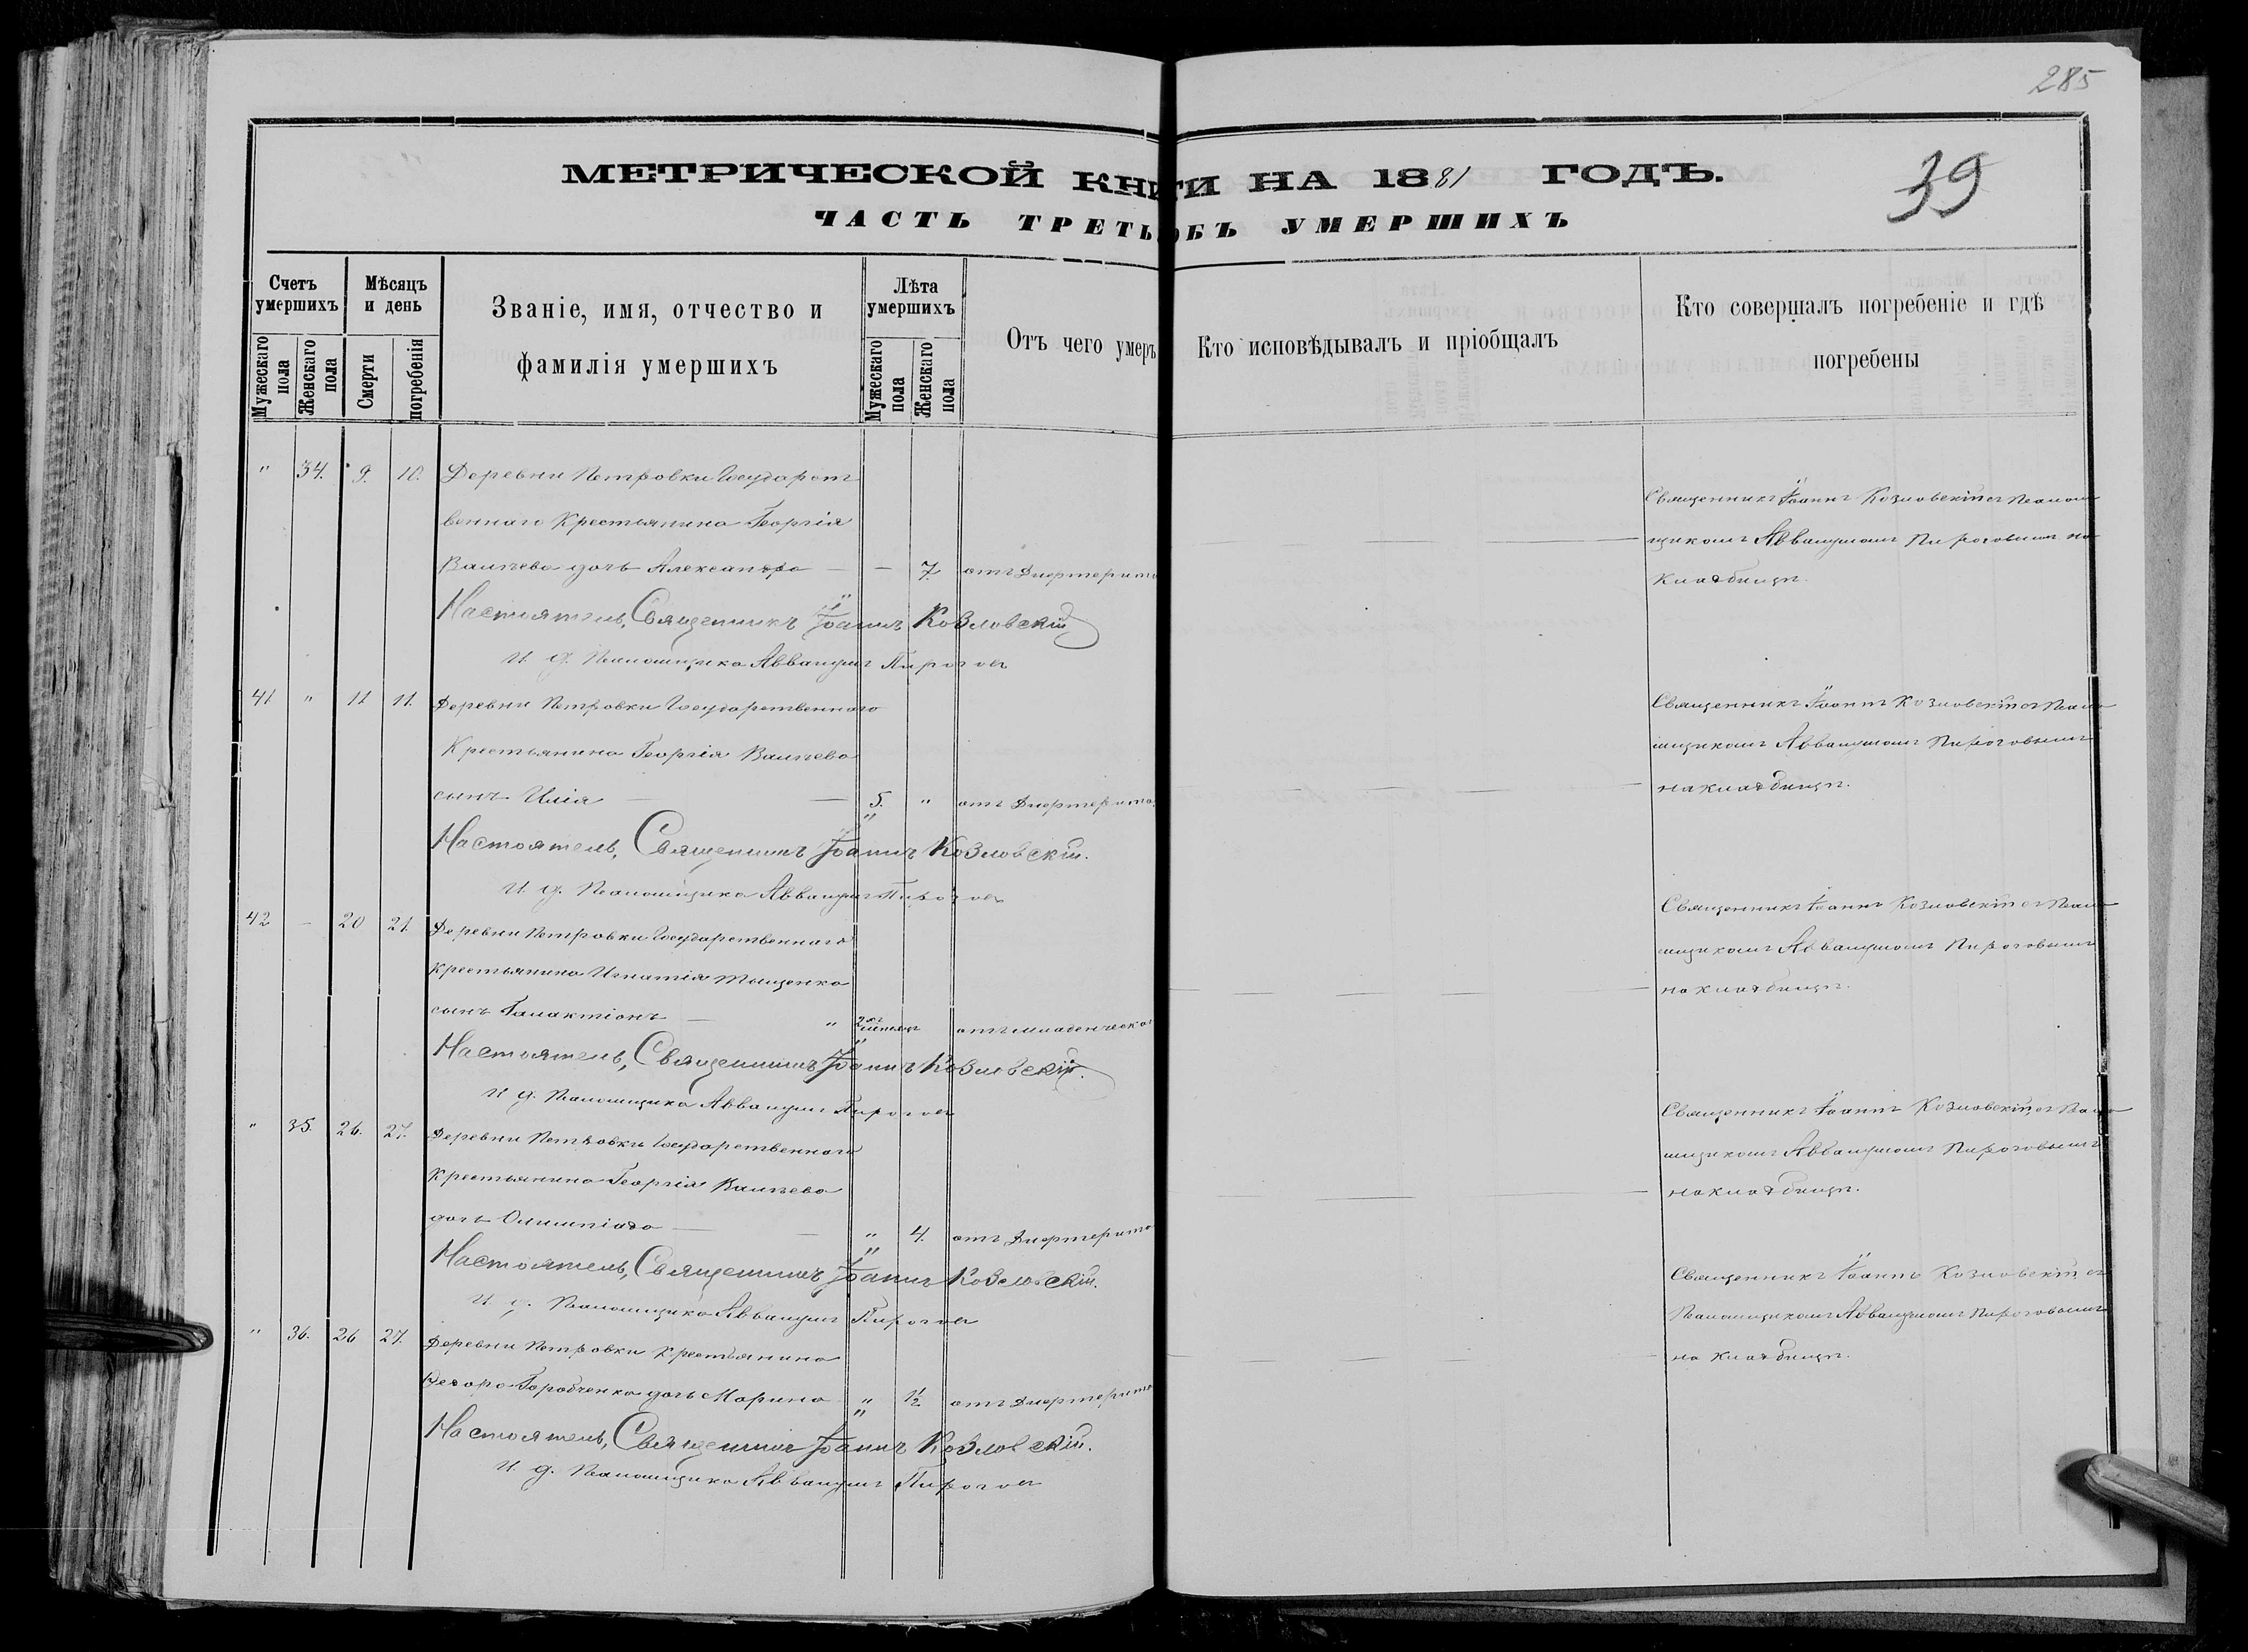 285
39
МЕТРИЧЕСКОЙ КНИГИ НА 1881 ГОДЪ.
ЧАСТЬ ТРЕТЬ ОБЪ УМЕРШИХЪ
Счетъ умершихъ
Мужескаго пола
Женскаго пола
Мѣсяцъ и день
Смерти
погребенія
Званіе, имя, отчество и
фамилія умершихъ
Лѣта умершихъ
Мужескаго пола
Женскаго пола
Отъ чего умеръ
Кто исповѣдывалъ и пріобщалъ
Кто совершалъ погребеніе и гдѣ
погребены
" 34. 9. 10. Деревни Петровки Государст
веннаго Крестьянина Георгія
Валчева дочь Александра — — 7. отъ Дифтерита
Священникъ Іоаннъ Козловскій съ Псалом
щикомъ Аввакумомъ Пироговымъ на
кладбищѣ.
Настоятель, Священникъ Іоаннъ Козловскій
И. д. Псаломщика Аввакумъ Пироговъ
41 " 11 11. Деревни Петровки Государственнаго
Крестьянина Георгія Валчева
сынъ Илія — — 5. " отъ Дифтерита.
Священникъ Іоаннъ Козловскій съ Псало
мщикомъ Аввакумомъ Пироговымъ
на кладбищѣ.
Настоятель, Священникъ Іоаннъ Козловскій.
И. д. Псаломщика Аввакумъ Пироговъ
42 — 20 21. Деревни Петровки Государственнаго
Крестьянина Игнатія Тищенка
сынъ Галактіонъ — " 2хъ отъ младенческой
Священникъ Іоаннъ Козловскій съ Псало
мщикомъ Аввакумомъ Пироговымъ
на кладбищѣ.
Настоятель, Священникъ Іоаннъ Козловскій.
И. д. Псаломщика Аввакумъ Пироговъ
" 35. 26. 27. Деревни Петровки Государственнаго
Крестьянина Георгія Валчева
дочь Олимпіада — — " 4. отъ Дифтерита
Священникъ Іоаннъ Козловскій съ Псало
мщикомъ Аввакумомъ Пироговымъ
на кладбищѣ.
Настоятель, Священникъ Іоаннъ Козловскій.
И. д. Псаломщика Аввакумъ Пироговъ
" 36. 26 27. Деревни Петровки Крестьянина
Горобченка дочь Марина " 1½ отъ Дифтерита
Священникъ Іоаннъ Козловскій съ
Псаломщикомъ Аввакумомъ Пироговымъ
на кладбищѣ.
Настоятель, Священникъ Іоаннъ Козловскій.
И. д. Псаломщика Аввакумъ Пироговъ